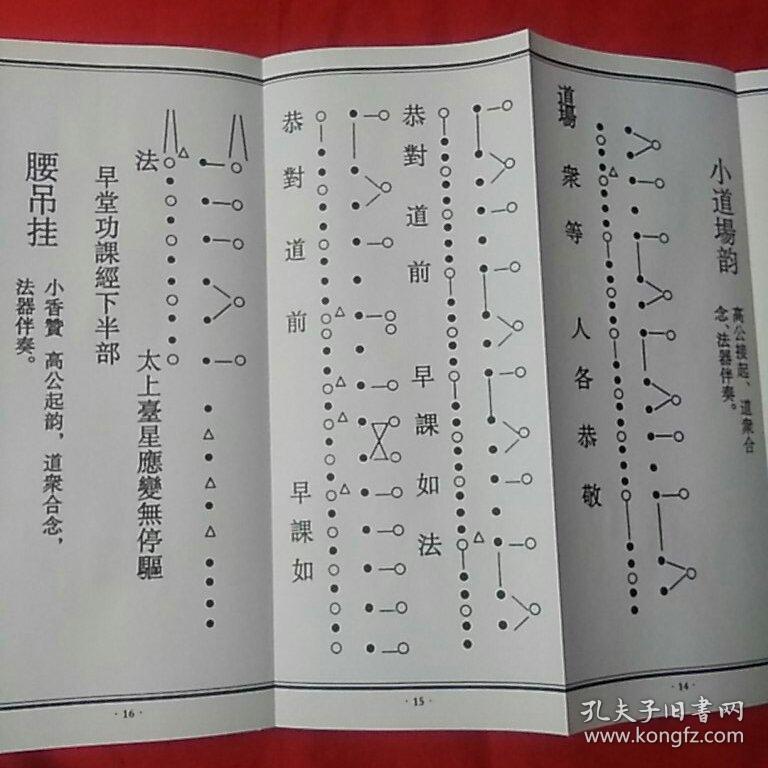 小道場韵
高公接起、道衆合
念、法器伴奏。
道場 衆等 人各恭敬
· 14 ·
恭對道前 早課如法
恭對道前 早課如
· 15 ·
法
太上臺星應變無停驅
早堂功課經下半部
腰吊挂
小香贊 高公起韵，道衆合念，
法器伴奏。
· 16 ·
孔夫子旧书网
www.kongfz.com